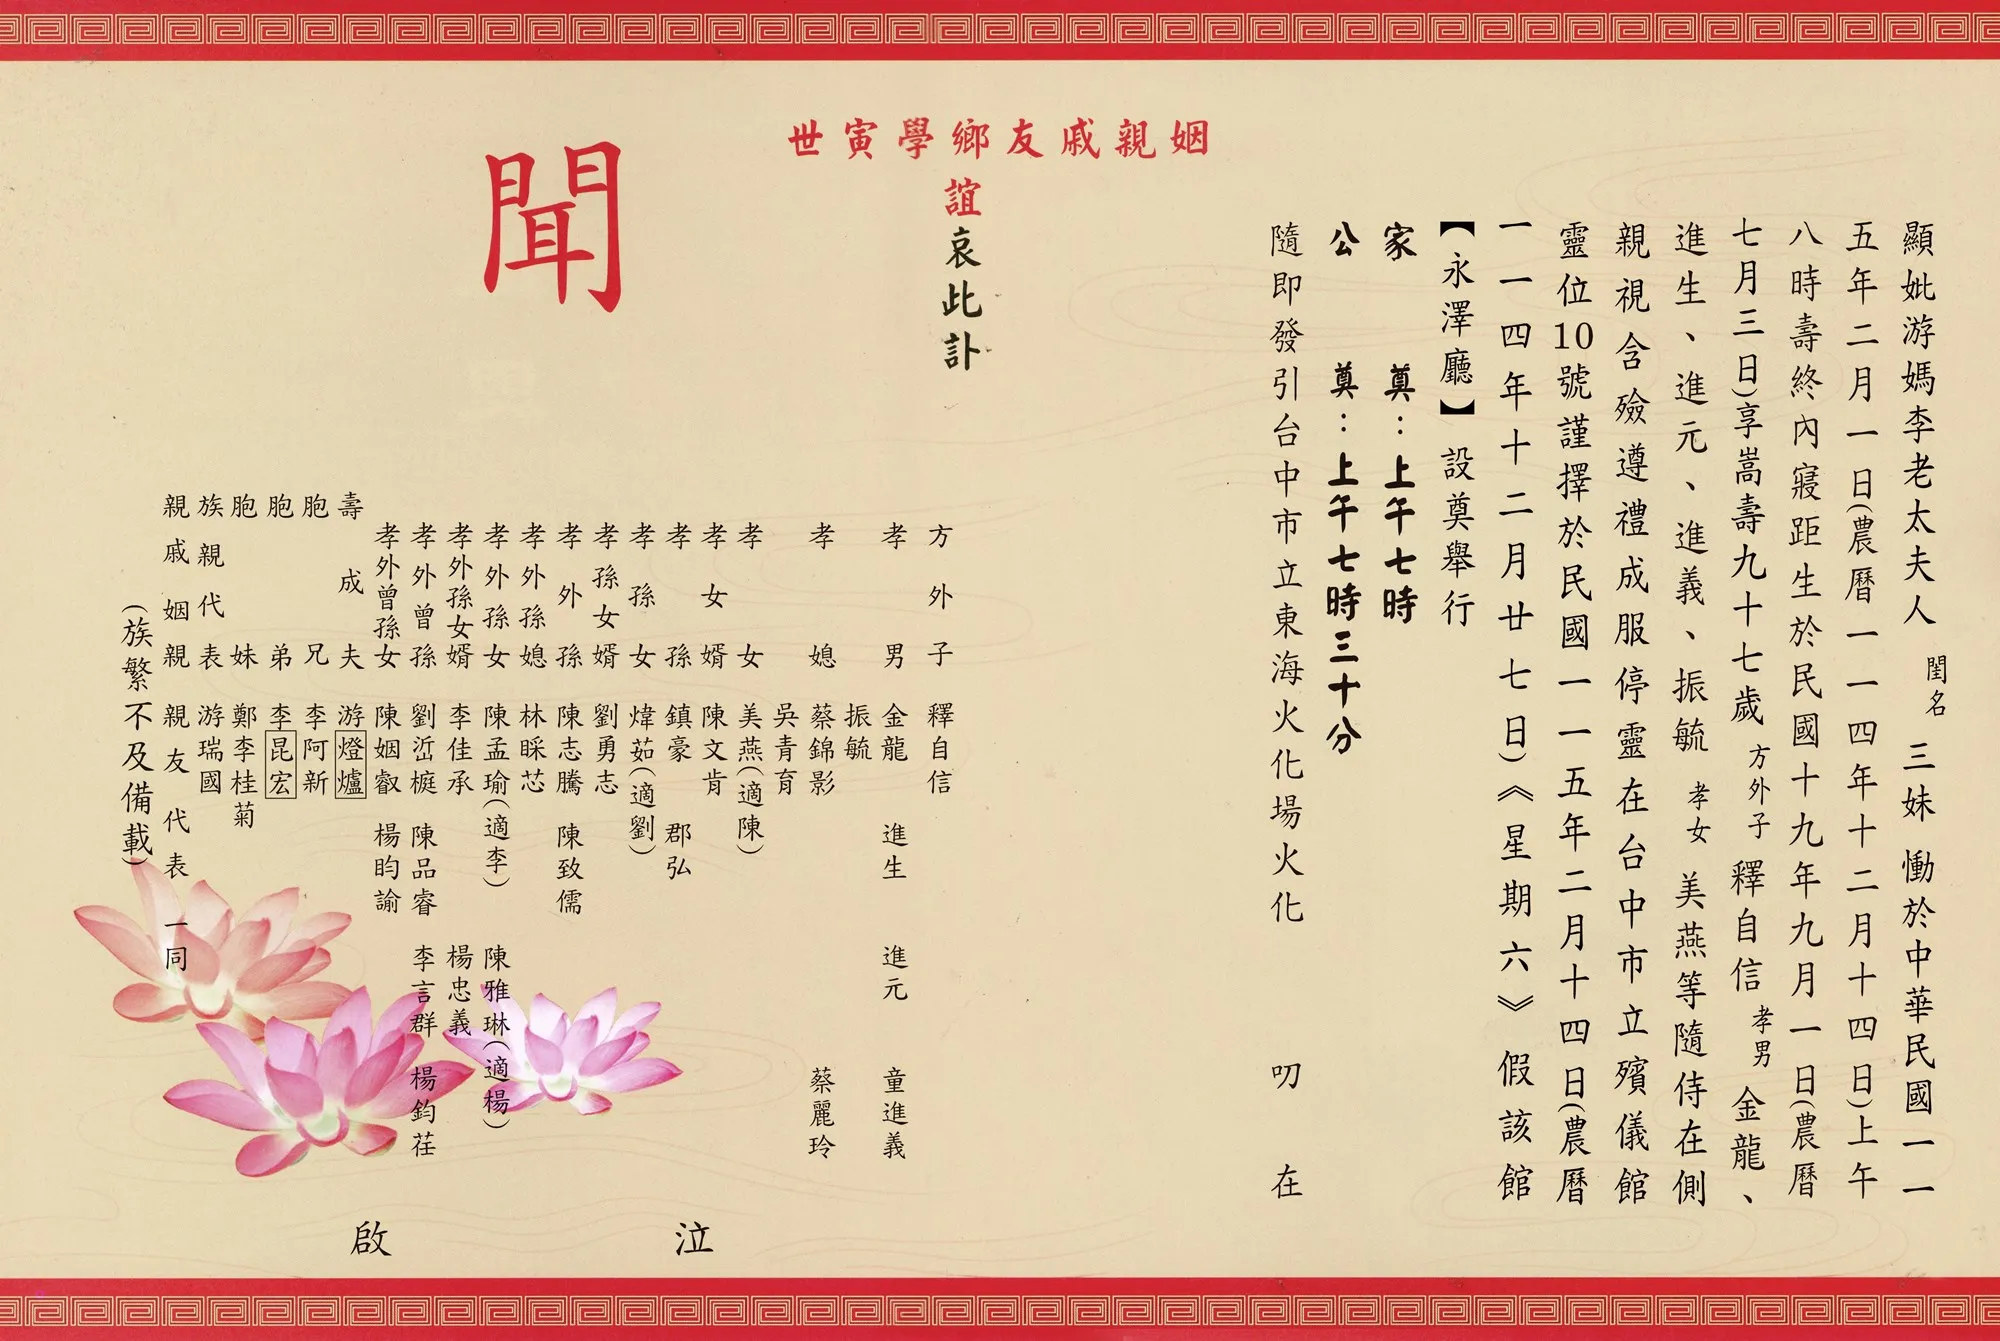 顯妣游媽李老太夫人 閨名 三妹 慟於中華民國一一
五年二月一日(農曆一一四年十二月十四日)上午
八時壽終內寢距生於民國十九年九月一日(農曆
七月三日)享嵩壽九十七歲 方外子 釋自信 孝男 金龍、
進生、進元、進義、振毓 孝女 美燕等隨侍在側
親視含殮遵禮成服停靈在台中市立殯儀館
靈位10號謹擇於民國一一五年二月十四日(農曆
一一四年十二月廿七日)《星期六》 假該館
【永澤廳】設奠舉行
家 奠：上午七時
公 奠：上午七時三十分
隨即發引台中市立東海火化場火化 叨 在
姻親戚友鄉學寅世
誼哀此訃
聞
方外子 釋自信
孝男 金龍 進生 進元 童進義
振毓
孝媳 蔡錦影 蔡麗玲
吳青育
孝女 美燕(適陳)
孝女婿 陳文肯
孝孫 鎮豪 郡弘
孝孫女 煒茹(適劉)
孝孫女婿 劉勇志
孝外孫 陳志騰 陳致儒
孝外孫媳 林睬芯
孝外孫女 陳孟瑜(適李) 陳雅琳(適楊)
孝外孫女婿 李佳承 楊忠義
孝外曾孫 劉峾榳 陳品睿 李言群 楊鈞荏
孝外曾孫女 陳姻叡 楊昀諭
壽成夫 游燈爐
胞兄 李阿新
胞弟 李昆宏
胞妹 鄭李桂菊
族親代表 游瑞國
親戚姻親親友代表 一同
(族繁不及備載)
泣
啟